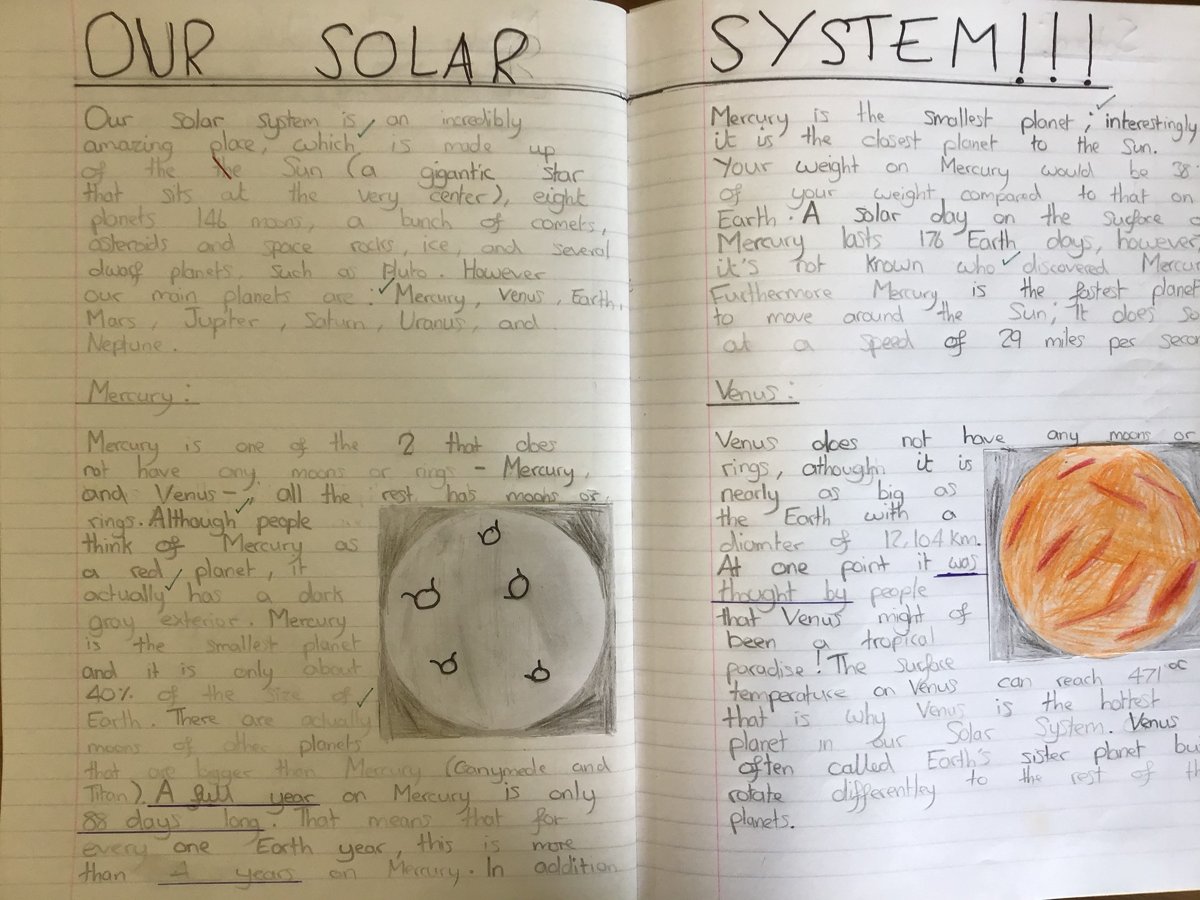 OUR SOLAR
Our solar system is an incredibly
amazing place, which, is made up
of the the Sun (a gigantic star
that sits at the very center), eight
planets 146 moons, a bunch of comets,
asteroids and space rocks, ice, and several
dwarf planets, such as Pluto. However
our main planets are: Mercury, Venus, Earth,
Mars, Jupiter, Saturn, Uranus, and
Neptune.
Mercury:
Mercury is one of the 2 that does
not have any moons or rings - Mercury
and Venus -, all the rest has moons or
rings. Although people
think of Mercury as
a red planet, it
actually has a dark
gray exterior. Mercury
is the smallest planet
and it is only about
40% of the size of
Earth. There are actually
moons of other planets
that are bigger than Mercury (Ganymede and
Titan). A full year on Mercury is only
88 days long. That means that for
every one Earth year, this is more
than 4 years on Mercury. In addition
SYSTEM!!!
Mercury is the smallest planet; interestingly
it is the closest planet to the Sun.
Your weight on Mercury would be 38
of your weight compared to that on
Earth. A solar day on the surface
Mercury lasts 176 Earth days, however
it's not known who discovered Mercur
Furthermore Mercury is the fastest planet
to move around the Sun; It does so
at a speed of 29 miles per secon
Venus:
Venus does not have any moons or
rings, athough it is
nearly as big as
the Earth with a
diamter of 12,104 km.
At one point it was
thought by people
that Venus might of
been a tropical
paradise! The surface
temperature on Venus can reach 471°C
that is why Venus is the hottest
planet in our Solar System. Venus
often called Earth's sister planet bu
rotate differentley to the rest of th
planets.